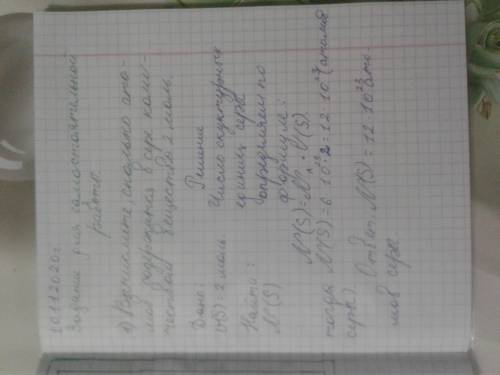 16.11.2020г.
Задания для самостоятельной
работы.
Вычислите, сколько ато-
мов содержится в сере коли-
чеством вещества 2 моль.
Дано: Решение
n(S) = 2 моль Число структурных
Найти: единиц серы
N(S) определяем по
формуле:
N(S) = Nₐ · V(S)
тогда N(S) = 6 · 10²³ · 2 = 12 · 10²³ (атомов
серы)
Ответ: N(S) = 12 · 10²³ ато-
мов серы